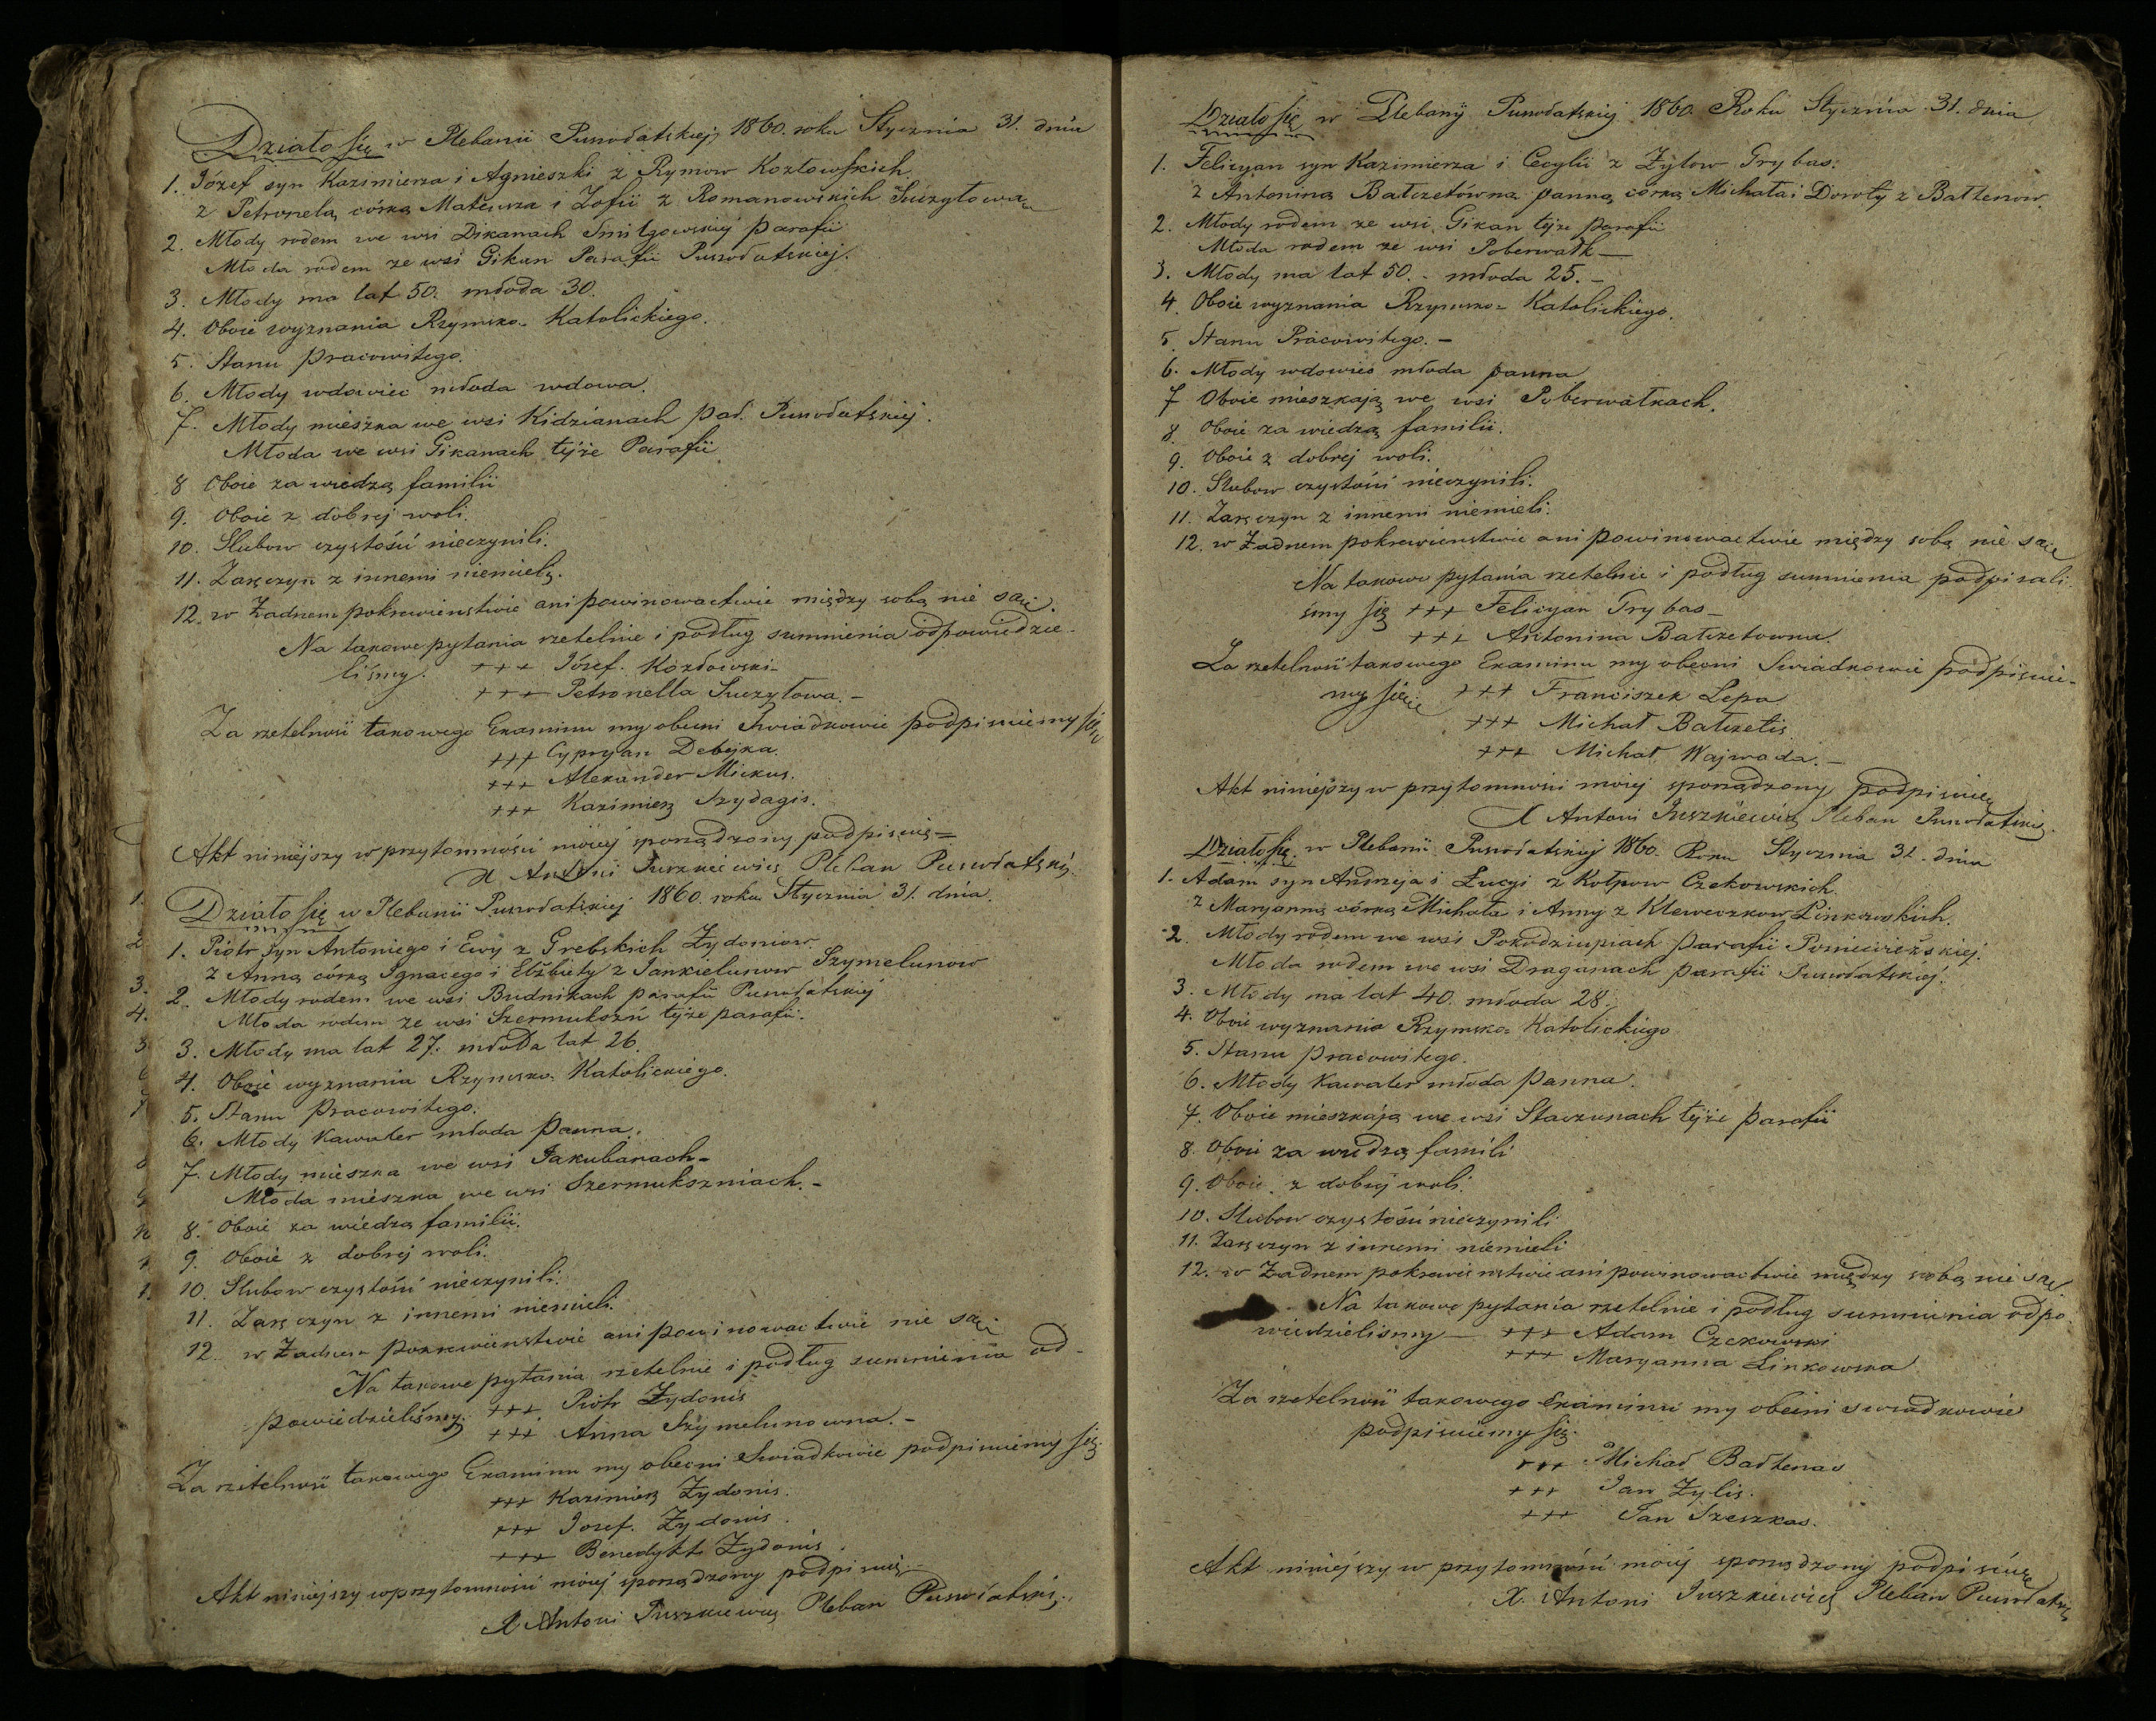 Działo się w Plebanii Puszołatskiej 1860. roku Stycznia 31. dnia
1. Józef syn Kazimierza i Agnieszki z Rymow Kozłowskich
z Petronelą córką Mateusza i Zofii z Romanowskich Suczyłowa
2. Młody rodem we wsi Dikanach Smilgowskiej parafii
Młoda rodem ze wsi Gikan Parafii Puszołatskiej.
3. Młody ma lat 50. młoda 30.
4. Oboie wyznania Rzymsko-Katolickiego.
5. Stanu pracowitego.
6. Młody wdowiec młoda wdowa.
7. Młody mieszka we wsi Kidzianach par. Puszołatskiej.
Młoda we wsi Gikanach tejże Parafii
8 Oboie za wiedzą familii
9. Oboie z dobrej woli.
10. Slubow czystości nieczynili.
11. Zaręczyn z innemi niemieli.
12. w Żadnem pokrewienstwie ani powinowactwie między sobą nie są.
Na takowe pytania rzetelnie i podług sumnienia odpowiedzie-
liśmy. +++ Józef. Kozłowski-
+++ Petronella Suczyłowa.-
Za rzetelność takowego Examinu my obecni Swiadkowie podpisuiemy się
+++ Cypryan Debejka.
+++ Alexander Mickus.
+++ Kazimierz Szydagis.
Akt niniejszy w przytomności mojej sporządzony podpisuię=
X Antoni Juszkiewicz Pleban Puszołatski.
Działo się w Plebanii Puszołatskiej 1860. roku Stycznia 31. dnia.
1. Piotr syn Antoniego i Ewy z Grebskich Zydoniow
z Anną córką Ignacego i Elżbiety z Jankielunow Szymelunow
2. Młody rodem we wsi Budnikach parafii Puszołatskiej
Młoda rodem ze wsi Szermukszń tejże parafii.
3. Młody ma lat 27. młoda lat 26.
4. Oboie wyznania Rzymsko-Katolickiego.
5. Stanu Pracowitego.
6. Młody Kawaler młoda Panna.
7. Młody mieszka we wsi Jakubanach-
Młoda mieszka we wsi Szermukszniach.-
8. Oboie za wiedzą familii.
9. Oboie z dobrej woli.
10. Slubow czystości nieczynili.
11. Zaręczyn z innemi niemieli.
12. w Żadnem pokrewienstwie ani powinowactwie nie są
Na takowe pytania rzetelnie i podług sumnienia od-
powiedzieliśmy. +++ Piotr Zydonis
+++ Anna Szymelunowna.-
Za rzetelność takowego Examinu my obecni Swiadkowie podpisuiemy się.
+++ Kazimierz Zydonis.
+++ Jozef. Zydonis.
+++ Benedykt Zydonis.
Akt niniejszy w przytomności mojej sporządzony podpisuię.-
X Antoni Juszkiewicz Pleban Puszołatski.
Działo się w Plebanij Puszołatskiej 1860. Roku Stycznia 31. dnia
1. Felicyan syn Kazimierza i Cecylii z Żyłow Trybas:
z Antoniną Bałczetówną panną córką Michała i Doroty z Bałtenow.
2. Młody rodem ze wsi Gikan tejże parafii
Młoda rodem ze wsi Poberwałk—
3. Młody ma lat 50.- młoda 25.-
4. Oboie wyznania Rzymsko=Katolickiego.
5. Stanu Pracowitego.-
6. Młody wdowiec młoda panna
7 Oboie mieszkają we wsi Poberwałkach.
8. Oboie za wiedzą familii.
9. Oboie z dobrej woli.
10. Slubow czystości nieczynili.
11. Zaręczyn z innemi niemieli.
12. w Żadnem pokrewienstwie ani powinowactwie między sobą nie są
Na takowe pytania rzetelnie i podług sumnienia podpisali-
śmy się +++ Felicyan Trybas-
+++ Antonina Bałczetowna.
Za rzetelność takowego Examinu my obecni Swiadkowie podpisuie-
my się +++ Franciszek Lepa
+++ Michał Bałczetis
+++ Michał Wajwada.-
Akt niniejszy w przytomności moiej sporządzony podpisuię
X Antoni Juszkiewicz Pleban Puszołatski.
Działo się w Plebanii Puszołatskiej 1860. Roku Stycznia 31. dnia
1. Adam syn Andrzeja i Łucyi z Kołpow Czekowskich
z Maryanną córką Michała i Anny z Kleweczkow Linkowskich.
2. Młody rodem we wsi Pokodziupiach parafii Poniewieżskiej.
Młoda rodem we wsi Draganach parafii Puszołatskiej.
3. Młody ma lat 40. młoda 28.
4. Oboie wyznania Rzymsko=Katolickiego
5. Stanu pracowitego.
6. Młody Kawaler młoda Panna.
7. Oboie mieszkają we wsi Staczunach tejże parafii
8. Oboie za wiedzą famili
9. Oboie z dobrej woli.
10. Slubow czystości nieczynili
11. Zaręczyn z innemi niemieli
12. w Żadnem pokrewienstwie ani powinowactwie między sobą nie są
Na takowe pytania rzetelnie i podług sumnienia odpo-
wiedzielismy— +++ Adam Czekowski
+++ Maryanna Linkowska
Za rzetelność takowego Examinu my obecni swiadkowie
podpisuiemy się.
+++ Michał Bałtenas
+++ Jan Zylis.
+++ Jan Szeszkas.
Akt niniejszy w przytomności moiej sporządzony podpisuię
X. Antoni Juszkiewicz Pleban Puszołatski